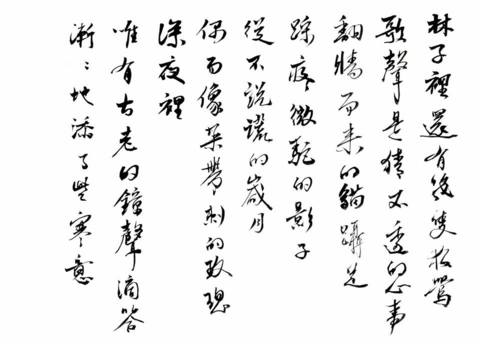 林子裡還有幾隻夜鶯
歌聲是猜不透的心事
翻牆而來的貓躡足
踩疼微駝的影子
從不說謊的歲月
偶而像朵帶刺的玫瑰
深夜裡
唯有古老的鐘聲滴答
漸〻地添了些寒意